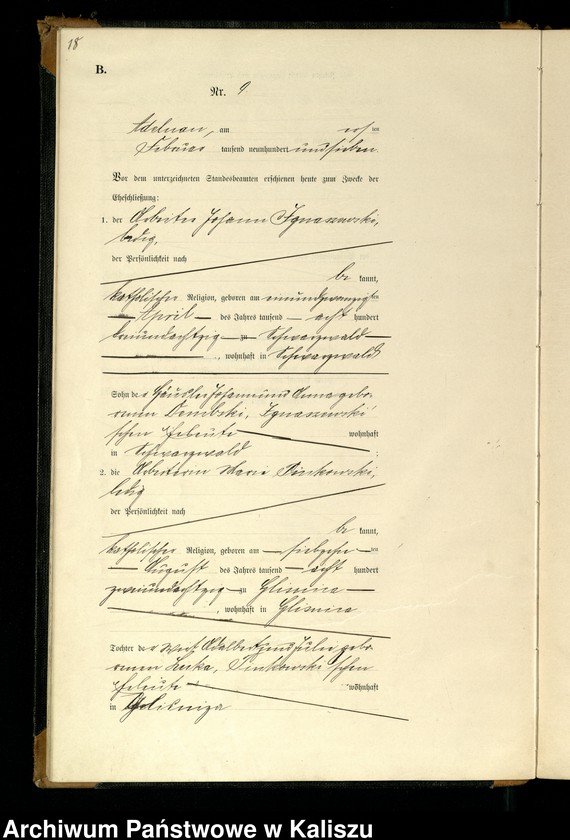 18
B.
Nr. 9
Adelnau, am ten
Februar tausend neunhundert und sieben
Vor dem unterzeichneten Standesbeamten erschienen heute zum Zwecke der
Eheschließung:
1. der Arbeiter Johann Ignaszewski,
ledig,
der Persönlichkeit nach
be kannt,
katholischer Religion, geboren am einundzwanzigsten
April des Jahres tausend acht hundert
zu Schwarzwald
, wohnhaft in Schwarzwald
Sohn des Häusler Johann und Anna gebo-
renen Dembski, Ignaszewski
schen Eheleute wohnhaft
in Schwarzwald ;
2. die Arbeiterin Marie Pinkowski,
ledig
der Persönlichkeit nach
be kannt,
katholischer Religion, geboren am siebzehn ten
August des Jahres tausend acht hundert
zweiundachtzig zu Glisnica
, wohnhaft in Glisnica
Tochter des Wirt Adalbert und Julie gebo-
renen Pinkowski'schen
Eheleute wohnhaft
in
Archiwum Państwowe w Kaliszu